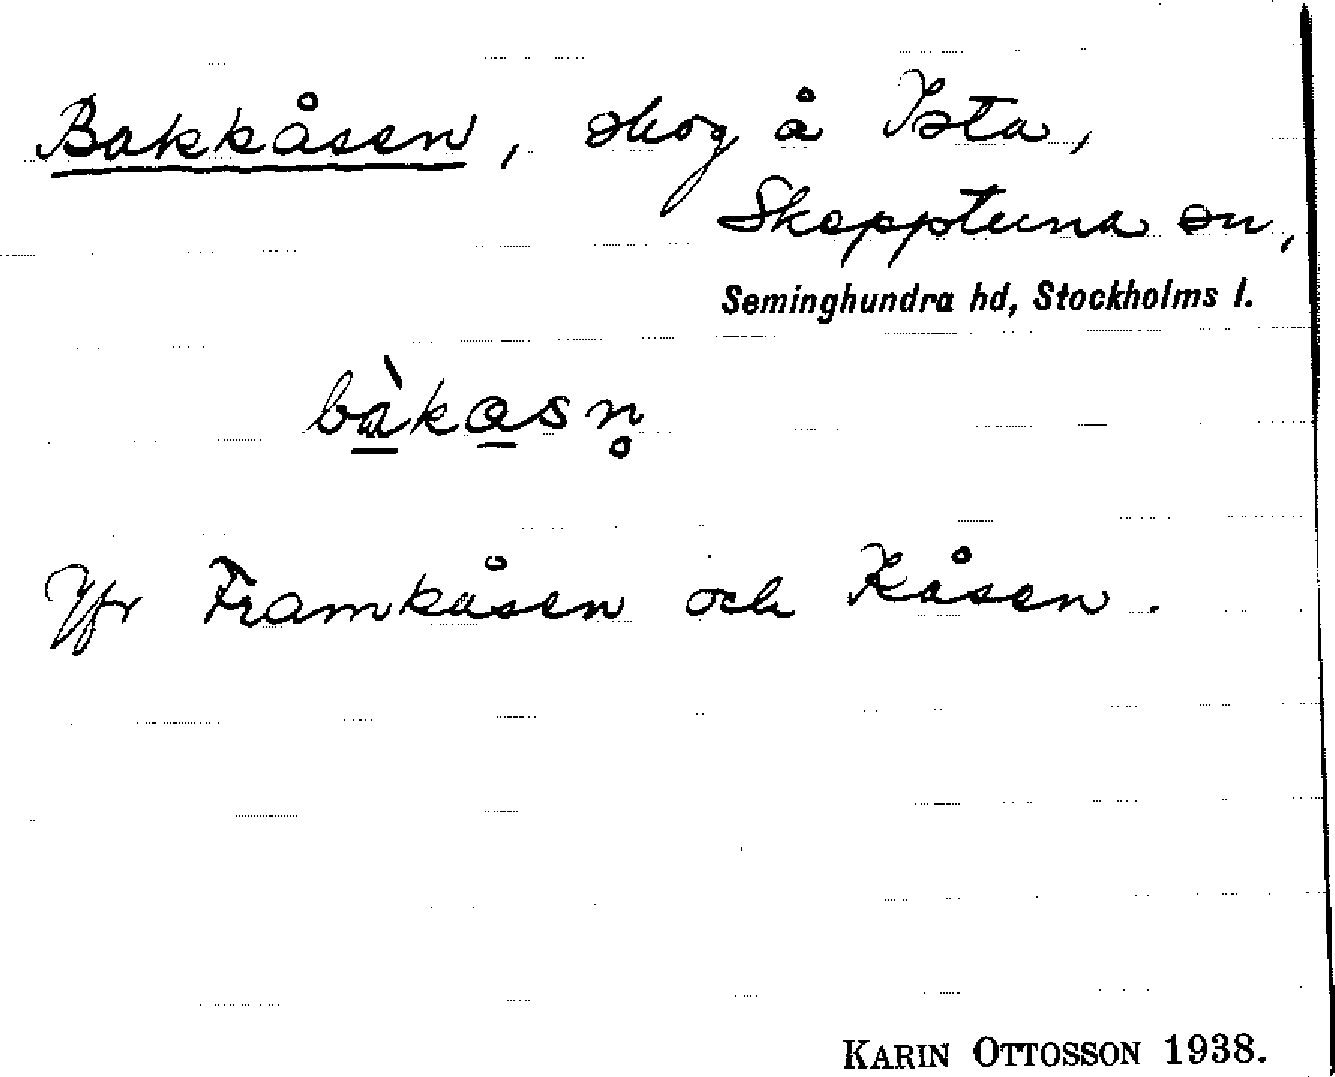 Bakkåsen, skog å Ista,
Skepptuna sn,
Seminghundra hd, Stockholms l.
bàkasn̥
Jfr Framkåsen och Kåsen.
KARIN OTTOSSON 1938.